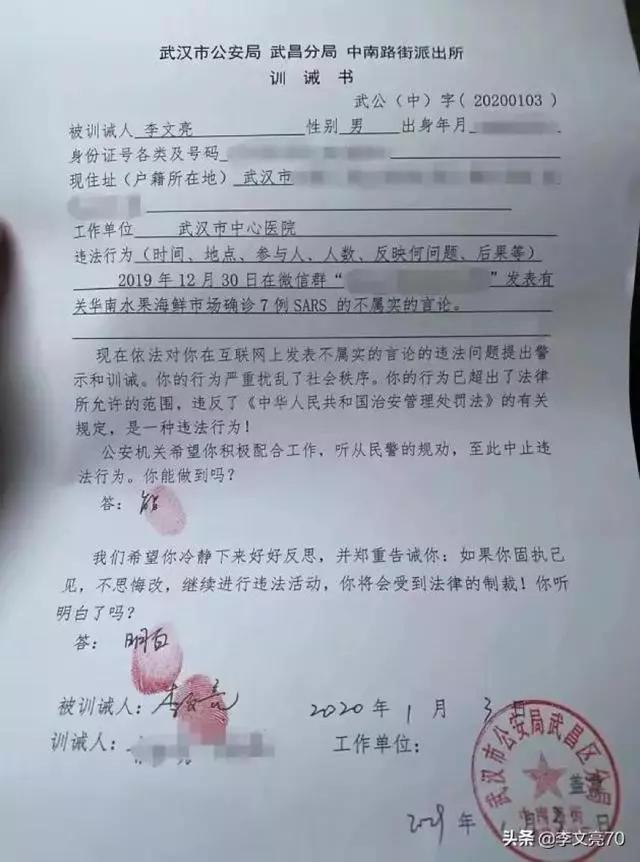 武汉市公安局 武昌分局 中南路街派出所
训 诫 书
武公（中）字（ 20200103 ）
被训诫人 李文亮 性别 男 出身年月
身份证号各类及号码
现住址（户籍所在地） 武汉市
工作单位 武汉市中心医院
违法行为（时间、地点、参与人、人数、反映何问题、后果等）
2019 年 12 月 30 日在微信群“ ”发表有
关华南水果海鲜市场确诊 7 例 SARS 的不属实的言论。
现在依法对你在互联网上发表不属实的言论的违法问题提出警
示和训诫。你的行为严重扰乱了社会秩序。你的行为已超出了法律
所允许的范围，违反了《中华人民共和国治安管理处罚法》的有关
规定，是一种违法行为！
公安机关希望你积极配合工作，听从民警的规劝，至此中止违
法行为。你能做到吗？
答： 能
我们希望你冷静下来好好反思，并郑重告诫你：如果你固执己
见，不思悔改，继续进行违法活动，你将会受到法律的制裁！你听
明白了吗？
答： 明白
被训诫人： 李文亮 2020 年 1 月 3 日
训诫人： 工作单位：
武汉市公安局武昌区分局
盖章
年 月 日
头条 @李文亮70